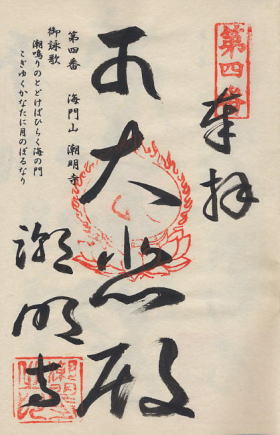 第四番
奉拝
大悲殿
潮明寺
第四番 海門山 潮明寺
御詠歌
潮鳴りのとどけばひらく海の門
こぎゆくかなたに月のぼるなり